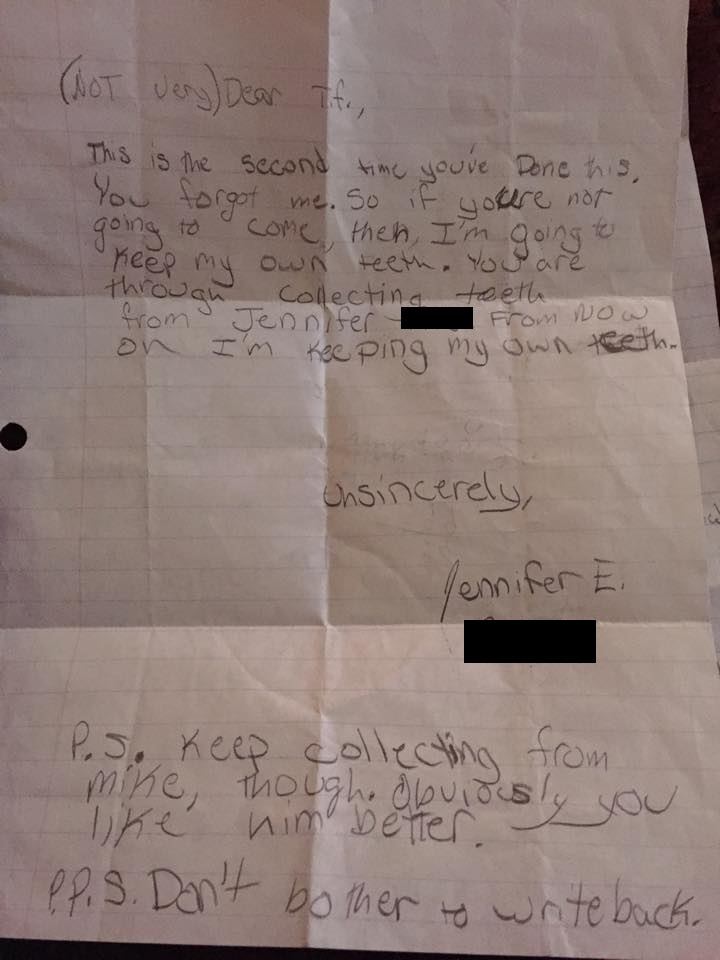 (NOT very) Dear T.f.,
This is the second time you've Done this.
You forgot me. So if you're not
going to come, then, I'm going to
Keep my own teeth. You are
through collecting teeth
from Jennifer From NOW
on I'm keeping my own teeth.
Unsincerely,
Jennifer E.
P.S. Keep collecting from
mike, though. Obviously you
like him better.
P.P.S. Don't bother to write back.